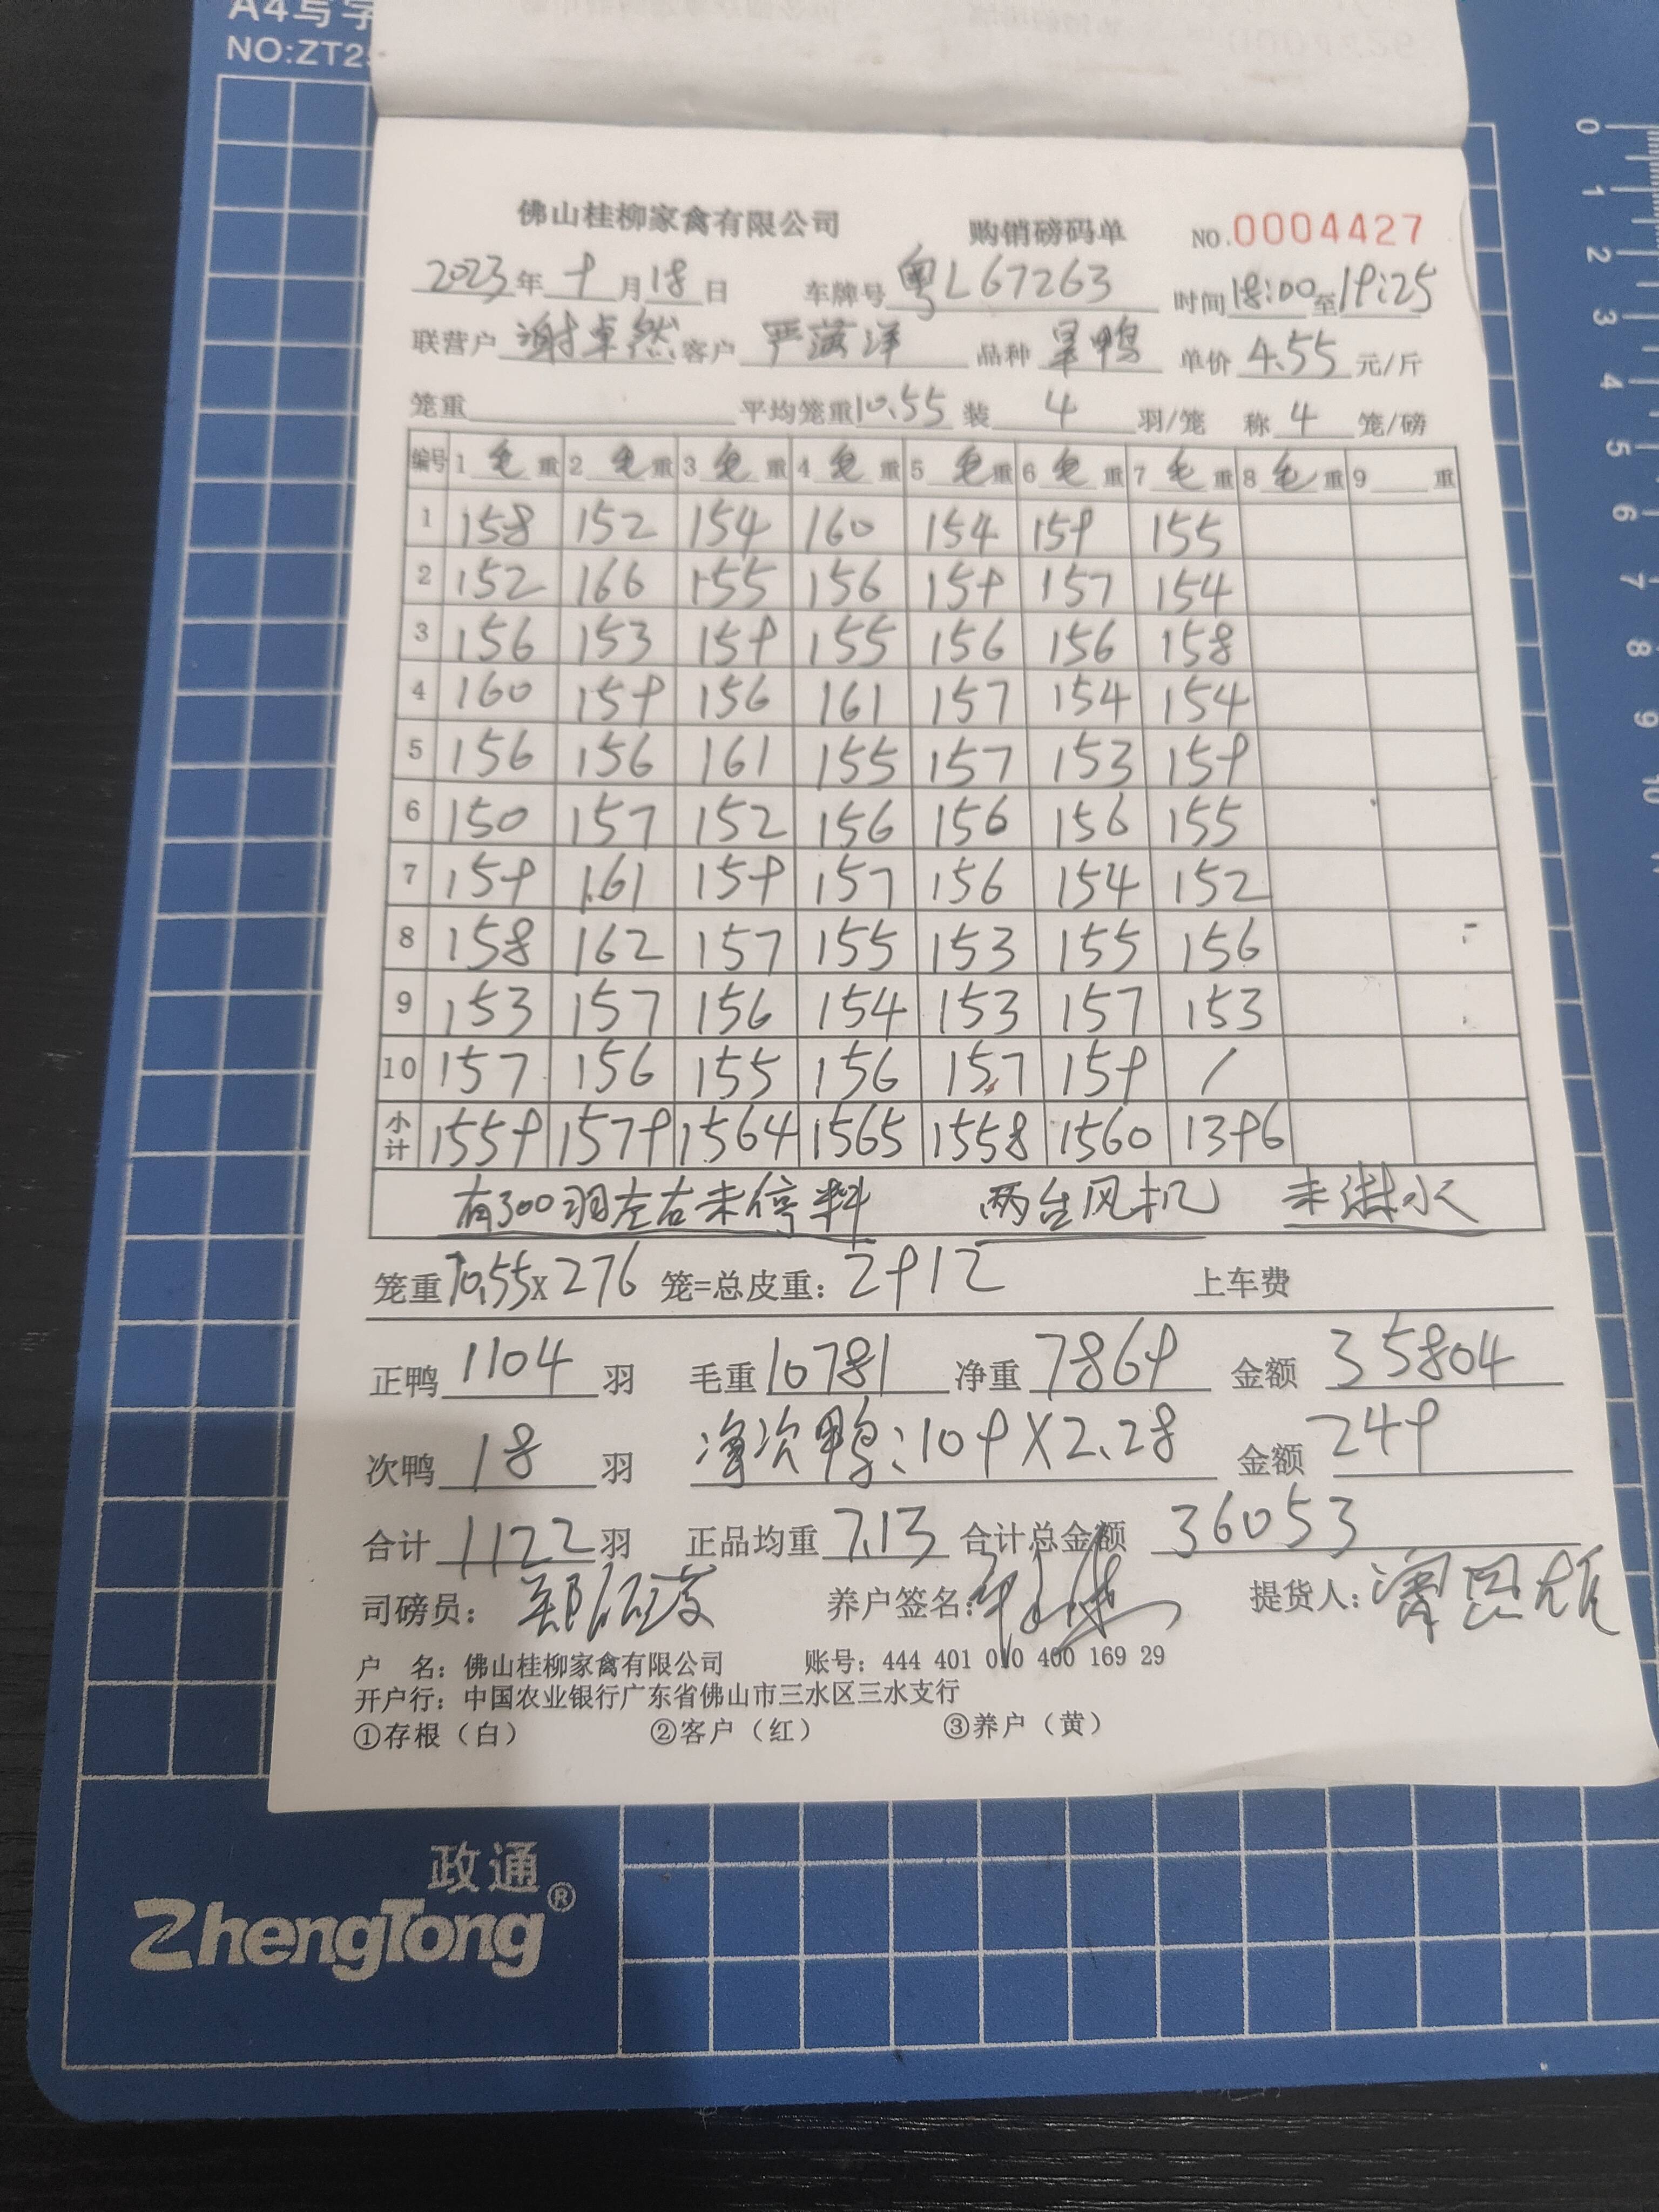 A4写字
NO:ZT25
佛山桂柳家禽有限公司 购销磅码单 NO.0004427
2023年9月18日 车牌号 粤L67263 时间18:00至19:25
联营户 谢卓然 客户 严满洋 品种 旱鸭 单价 4.55 元/斤
笼重 平均笼重10.55 装 4 羽/笼 称 4 笼/磅
编号 1 毛 重 2 毛 重 3 毛 重 4 毛 重 5 毛 重 6 毛 重 7 毛 重 8 毛 重 9 重
1 158 152 154 160 154 159 155
2 152 166 155 156 159 157 154
3 156 153 159 155 156 156 158
4 160 159 156 161 157 154 154
5 156 156 161 155 157 153 159
6 150 157 152 156 156 156 155
7 159 161 159 157 156 154 152
8 158 162 157 155 153 155 156
9 153 157 156 154 153 157 153
10 157 156 155 156 157 159 /
小计 1559 1579 1564 1565 1558 1560 1396
有300羽左右未停料 两台风机 未淋水
笼重10.55x276 笼=总皮重：2912 上车费
正鸭 1104 羽 毛重 10781 净重 7869 金额 35804
次鸭 18 羽 净次鸭:109X2.28 金额 249
合计 1122 羽 正品均重 7.13 合计总金额 36053
司磅员： 养户签名： 提货人：
户 名：佛山桂柳家禽有限公司 账号：444 401 010 400 169 29
开户行：中国农业银行广东省佛山市三水区三水支行
①存根（白） ②客户（红） ③养户（黄）
0
1
2
3
4
5
6
7
8
9
10
政通
ZhengTong®